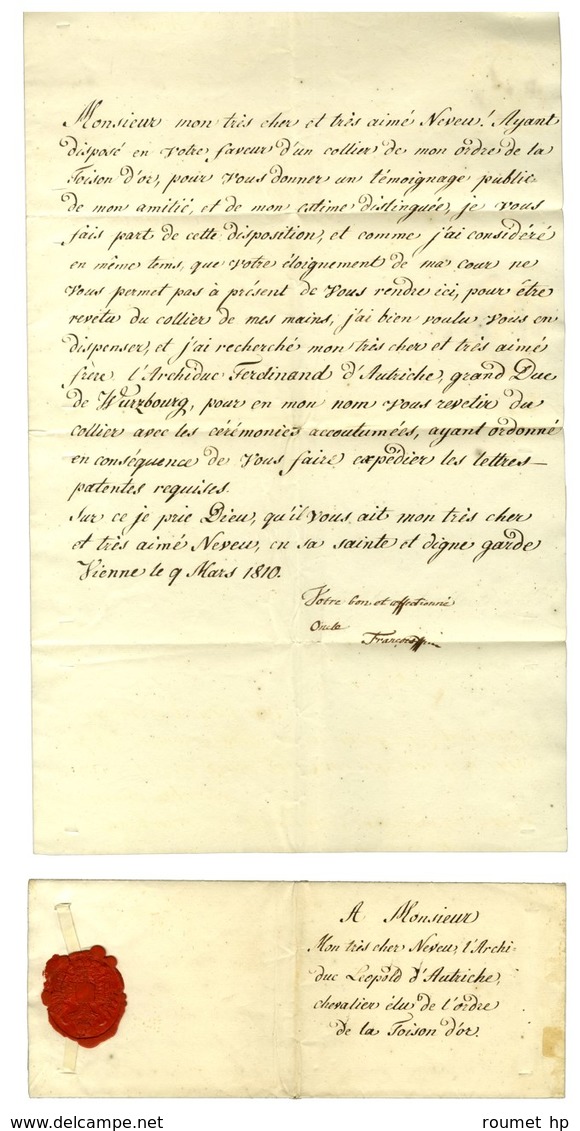 Monsieur mon très cher et très aimé Neveu! Ayant
disposé en Votre faveur d'un collier de mon ordre de la
Toison d'or, pour Vous donner un témoignage public
de mon amitié, et de mon estime distinguée, je vous
fais part de cette disposition, et comme j'ai considéré
en même tems, que Votre éloignement de ma cour ne
Vous permet pas à présent de Vous rendre ici, pour être
revetu du collier de mes mains, j'ai bien voulu Vous en
dispenser, et j'ai recherché mon très cher et très aimé
frère l'Archiduc Ferdinand d'Autriche, grand Duc
de Wurzbourg, pour en mon nom Vous revetir du
collier avec les cérémonies accoutumées, ayant ordonné
en conséquence de Vous faire expédier les lettres-
patentes requises.
Sur ce je prie Dieu, qu'il Vous ait mon très cher
et très aimé Neveu, en sa sainte et digne garde
Vienne le 9 Mars 1810.
Votre bon et affectionné
Oncle
François
A Monsieur
Mon très cher Neveu, l'Archi-
duc Leopold d'Autriche,
chevalier élu de l'ordre
de la Toison d'or.
roumet hp